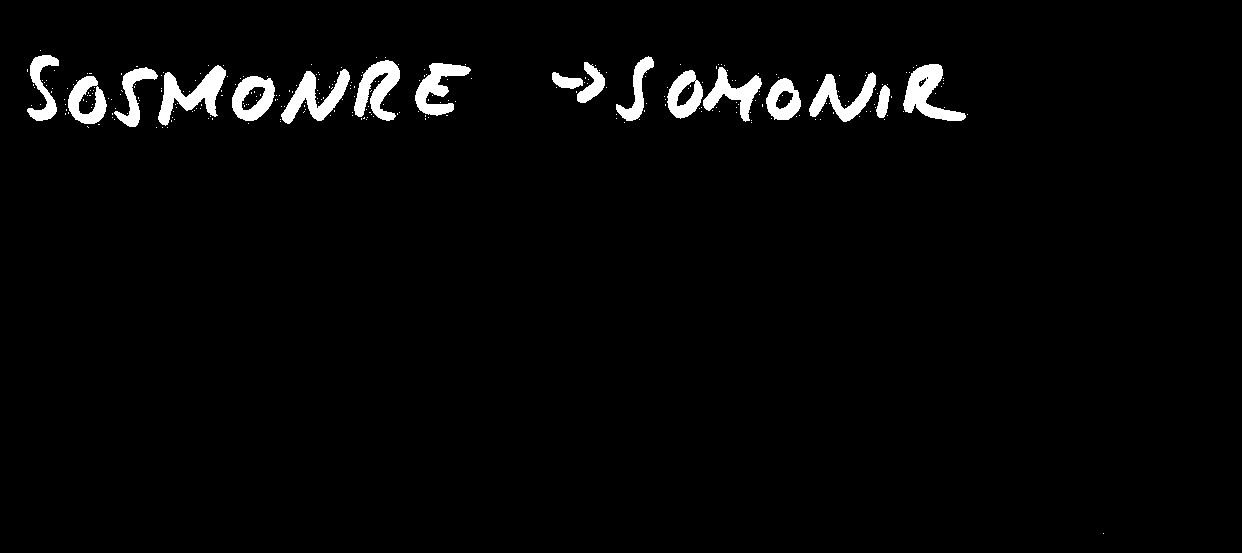 SOSMONRE → SOMONIR